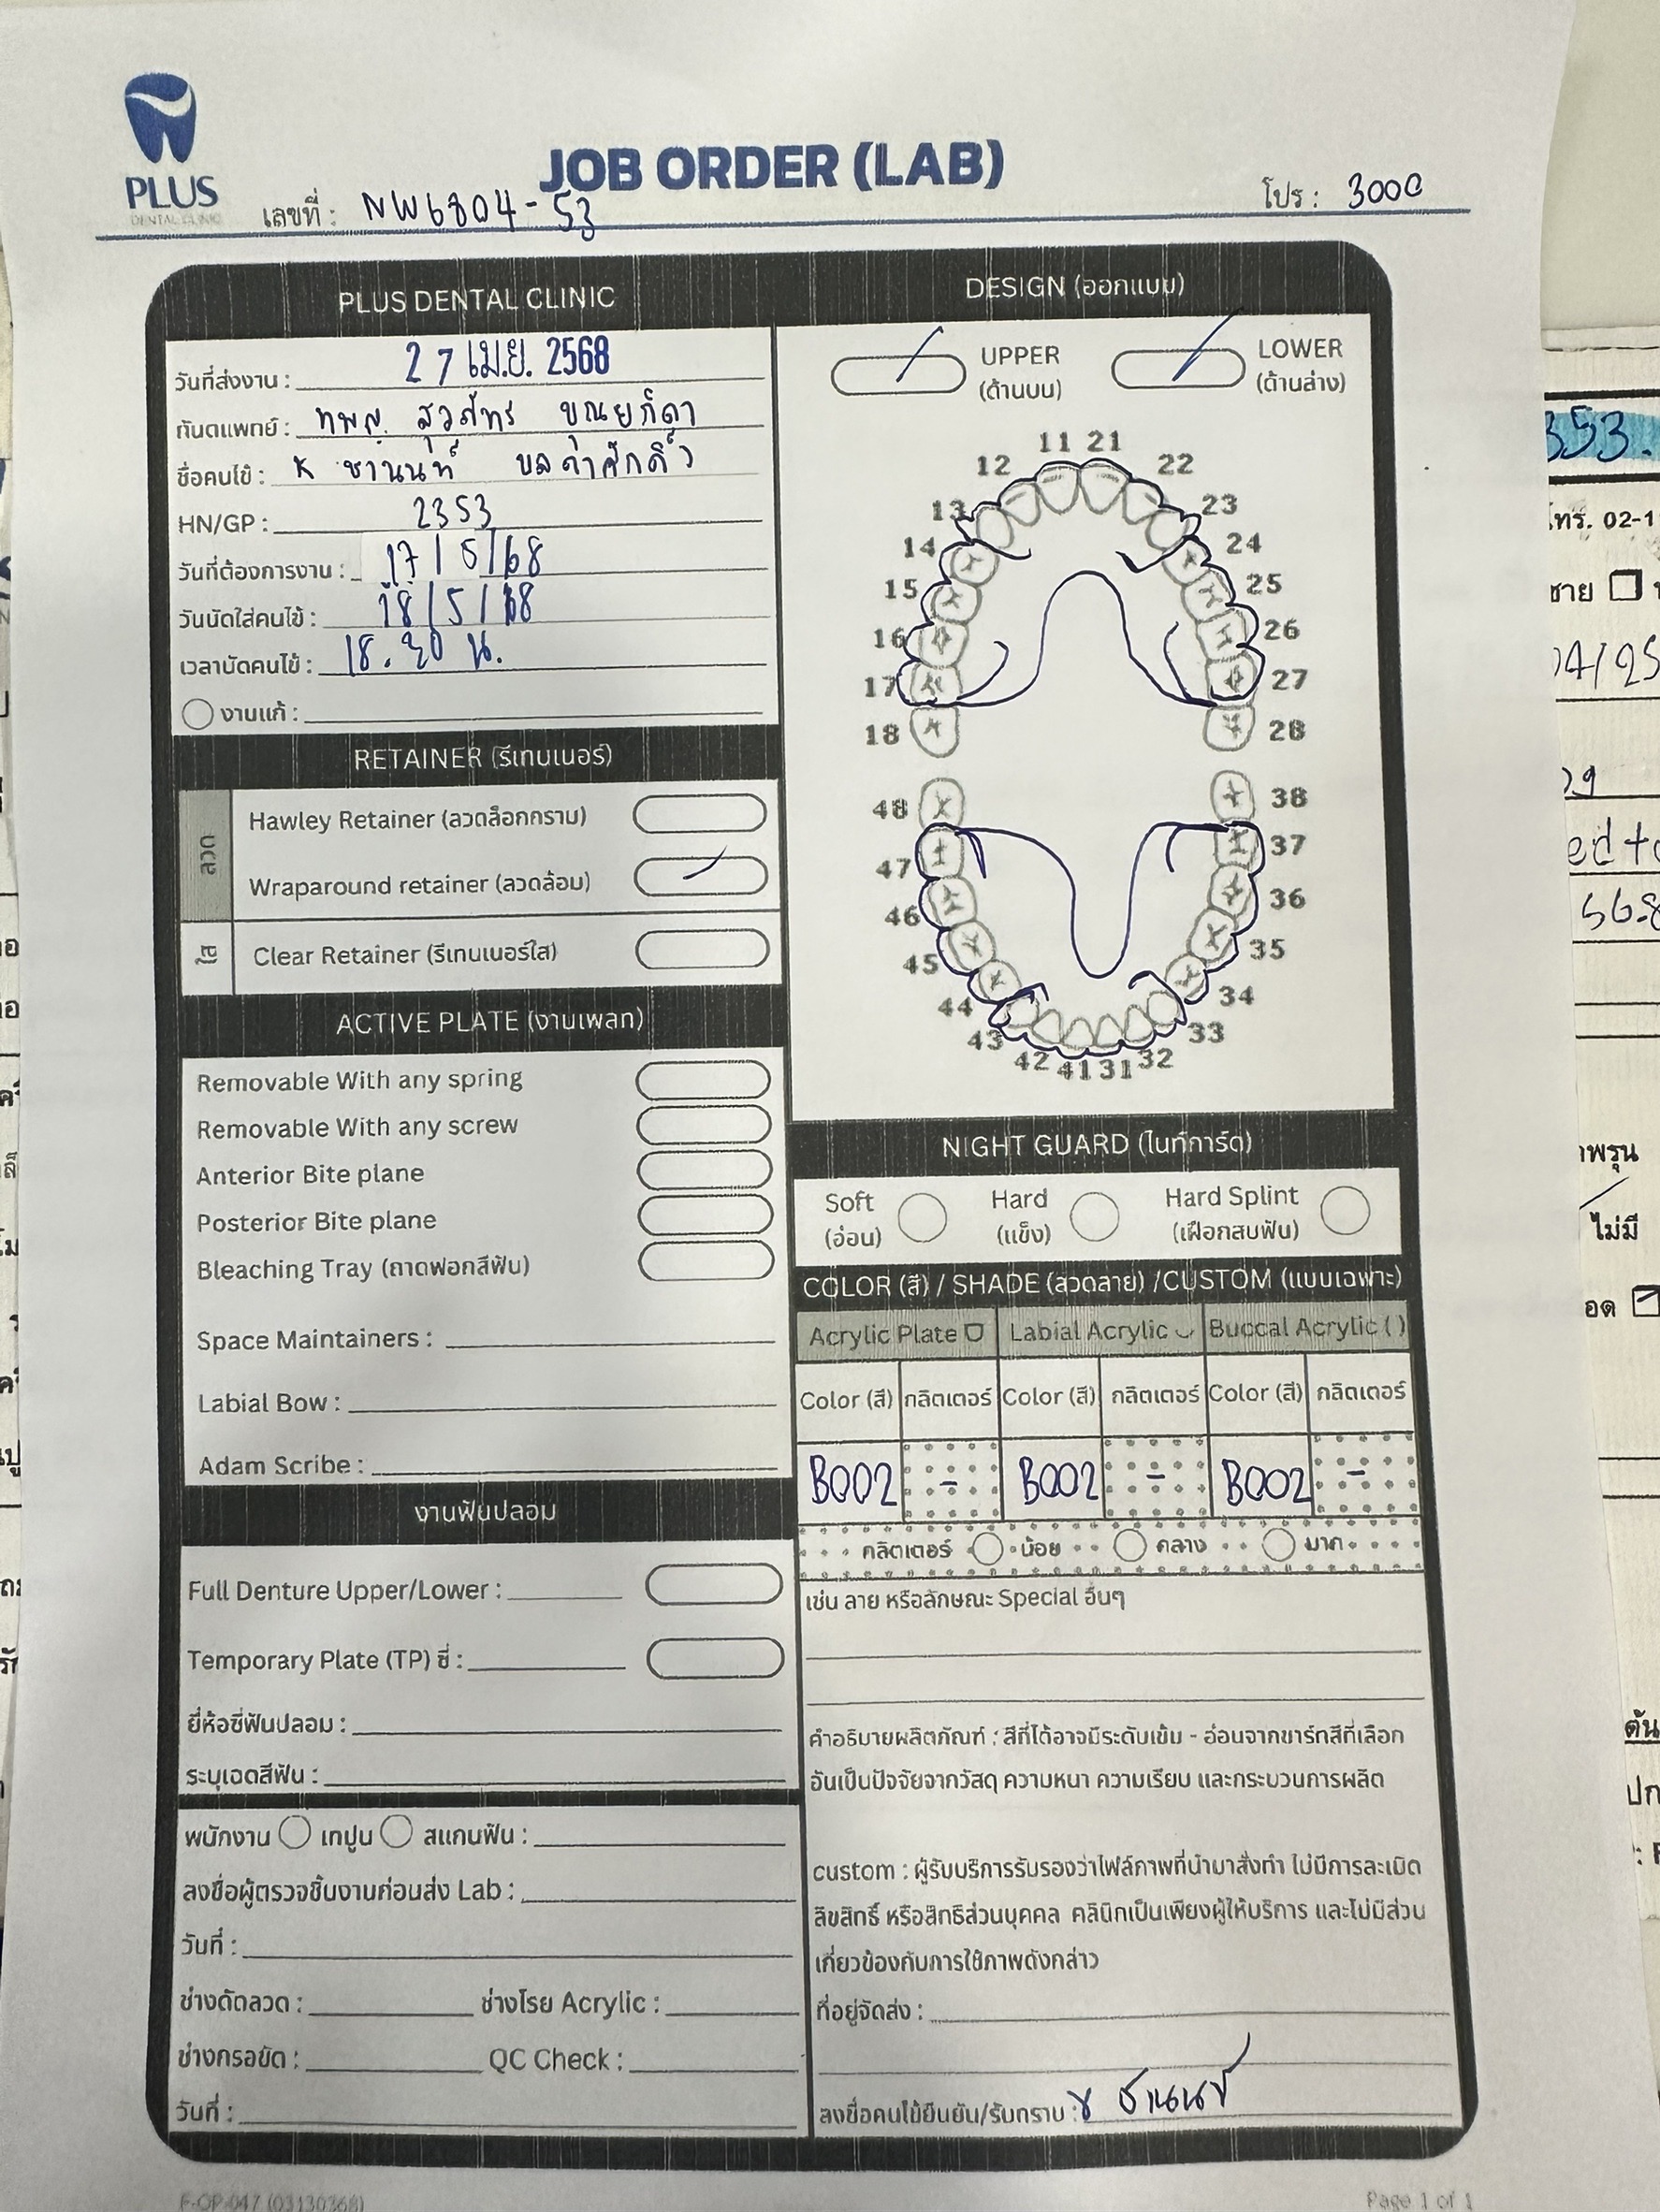 PLUS
DENTAL CLINIC
JOB ORDER (LAB)
เลขที่ : NW6804-53
โปร : 3000
PLUS DENTAL CLINIC
วันที่ส่งงาน : 27 เม.ย. 2568
ทันตแพทย์ : ทพญ. สุวภัทร
ชื่อคนไข้ : ชานนท์
HN/GP : 2353
วันที่ต้องการงาน : 17/5/68
วันนัดใส่คนไข้ : 18/5/68
เวลานัดคนไข้ : 18.30 น.
งานแก้ :
RETAINER (รีเทนเนอร์)
ลวด
Hawley Retainer (ลวดล็อกกราม)
Wraparound retainer (ลวดล้อม)
ใส
Clear Retainer (รีเทนเนอร์ใส)
ACTIVE PLATE (งานเพลท)
Removable With any spring
Removable With any screw
Anterior Bite plane
Posterior Bite plane
Bleaching Tray (ถาดฟอกสีฟัน)
Space Maintainers :
Labial Bow :
Adam Scribe :
งานฟันปลอม
Full Denture Upper/Lower :
Temporary Plate (TP) ซี่ :
ยี่ห้อซี่ฟันปลอม :
ระบุเฉดสีฟัน :
พนักงาน เทปูน สแกนฟัน :
ลงชื่อผู้ตรวจชิ้นงานก่อนส่ง Lab :
วันที่ :
ช่างดัดลวด : ช่างโรย Acrylic :
ช่างกรอขัด : QC Check :
วันที่ :
DESIGN (ออกแบบ)
UPPER
(ด้านบน)
LOWER
(ด้านล่าง)
11 21
12 22
13 23
14 24
15 25
16 26
17 27
18 28
48 38
47 37
46 36
45 35
44 34
43 33
42 41 31 32
NIGHT GUARD (ไนท์การ์ด)
Soft
(อ่อน)
Hard
(แข็ง)
Hard Splint
(เฝือกสบฟัน)
COLOR (สี) / SHADE (ลวดลาย) /CUSTOM (แบบเฉพาะ)
Acrylic Plate Labial Acrylic Buccal Acrylic ( )
Color (สี) กลิตเตอร์ Color (สี) กลิตเตอร์ Color (สี) กลิตเตอร์
B002 - B002 - B002 -
กลิตเตอร์ น้อย กลาง มาก
เช่น ลาย หรือลักษณะ Special อื่นๆ
คำอธิบายผลิตภัณฑ์ : สีที่ได้อาจมีระดับเข้ม - อ่อนจากชาร์ทสีที่เลือก
อันเป็นปัจจัยจากวัสดุ ความหนา ความเรียบ และกระบวนการผลิต
custom : ผู้รับบริการรับรองว่าไฟล์ภาพที่นำมาสั่งทำ ไม่มีการละเมิด
ลิขสิทธิ์ หรือสิทธิส่วนบุคคล คลินิกเป็นเพียงผู้ให้บริการ และไม่มีส่วน
เกี่ยวข้องกับการใช้ภาพดังกล่าว
ที่อยู่จัดส่ง :
ลงชื่อคนไข้ยืนยัน/รับทราบ : ชานนท์
F-OP-047 (03130368)
Page 1 of 1
353.
โทร. 02-1
ชาย
04/25
ไม่มี